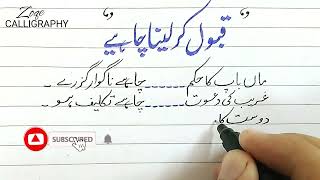 Zoqe
CALLIGRAPHY
" قبول کر لینا چاہیے "
ماں باپ کا حکم ۔۔۔۔۔ چاہے ناگوار گزرے ۔
غریب کی دعوت ۔۔۔۔۔ چاہے تکلیف ہو ۔
دوست کا
SUBSCRIBED